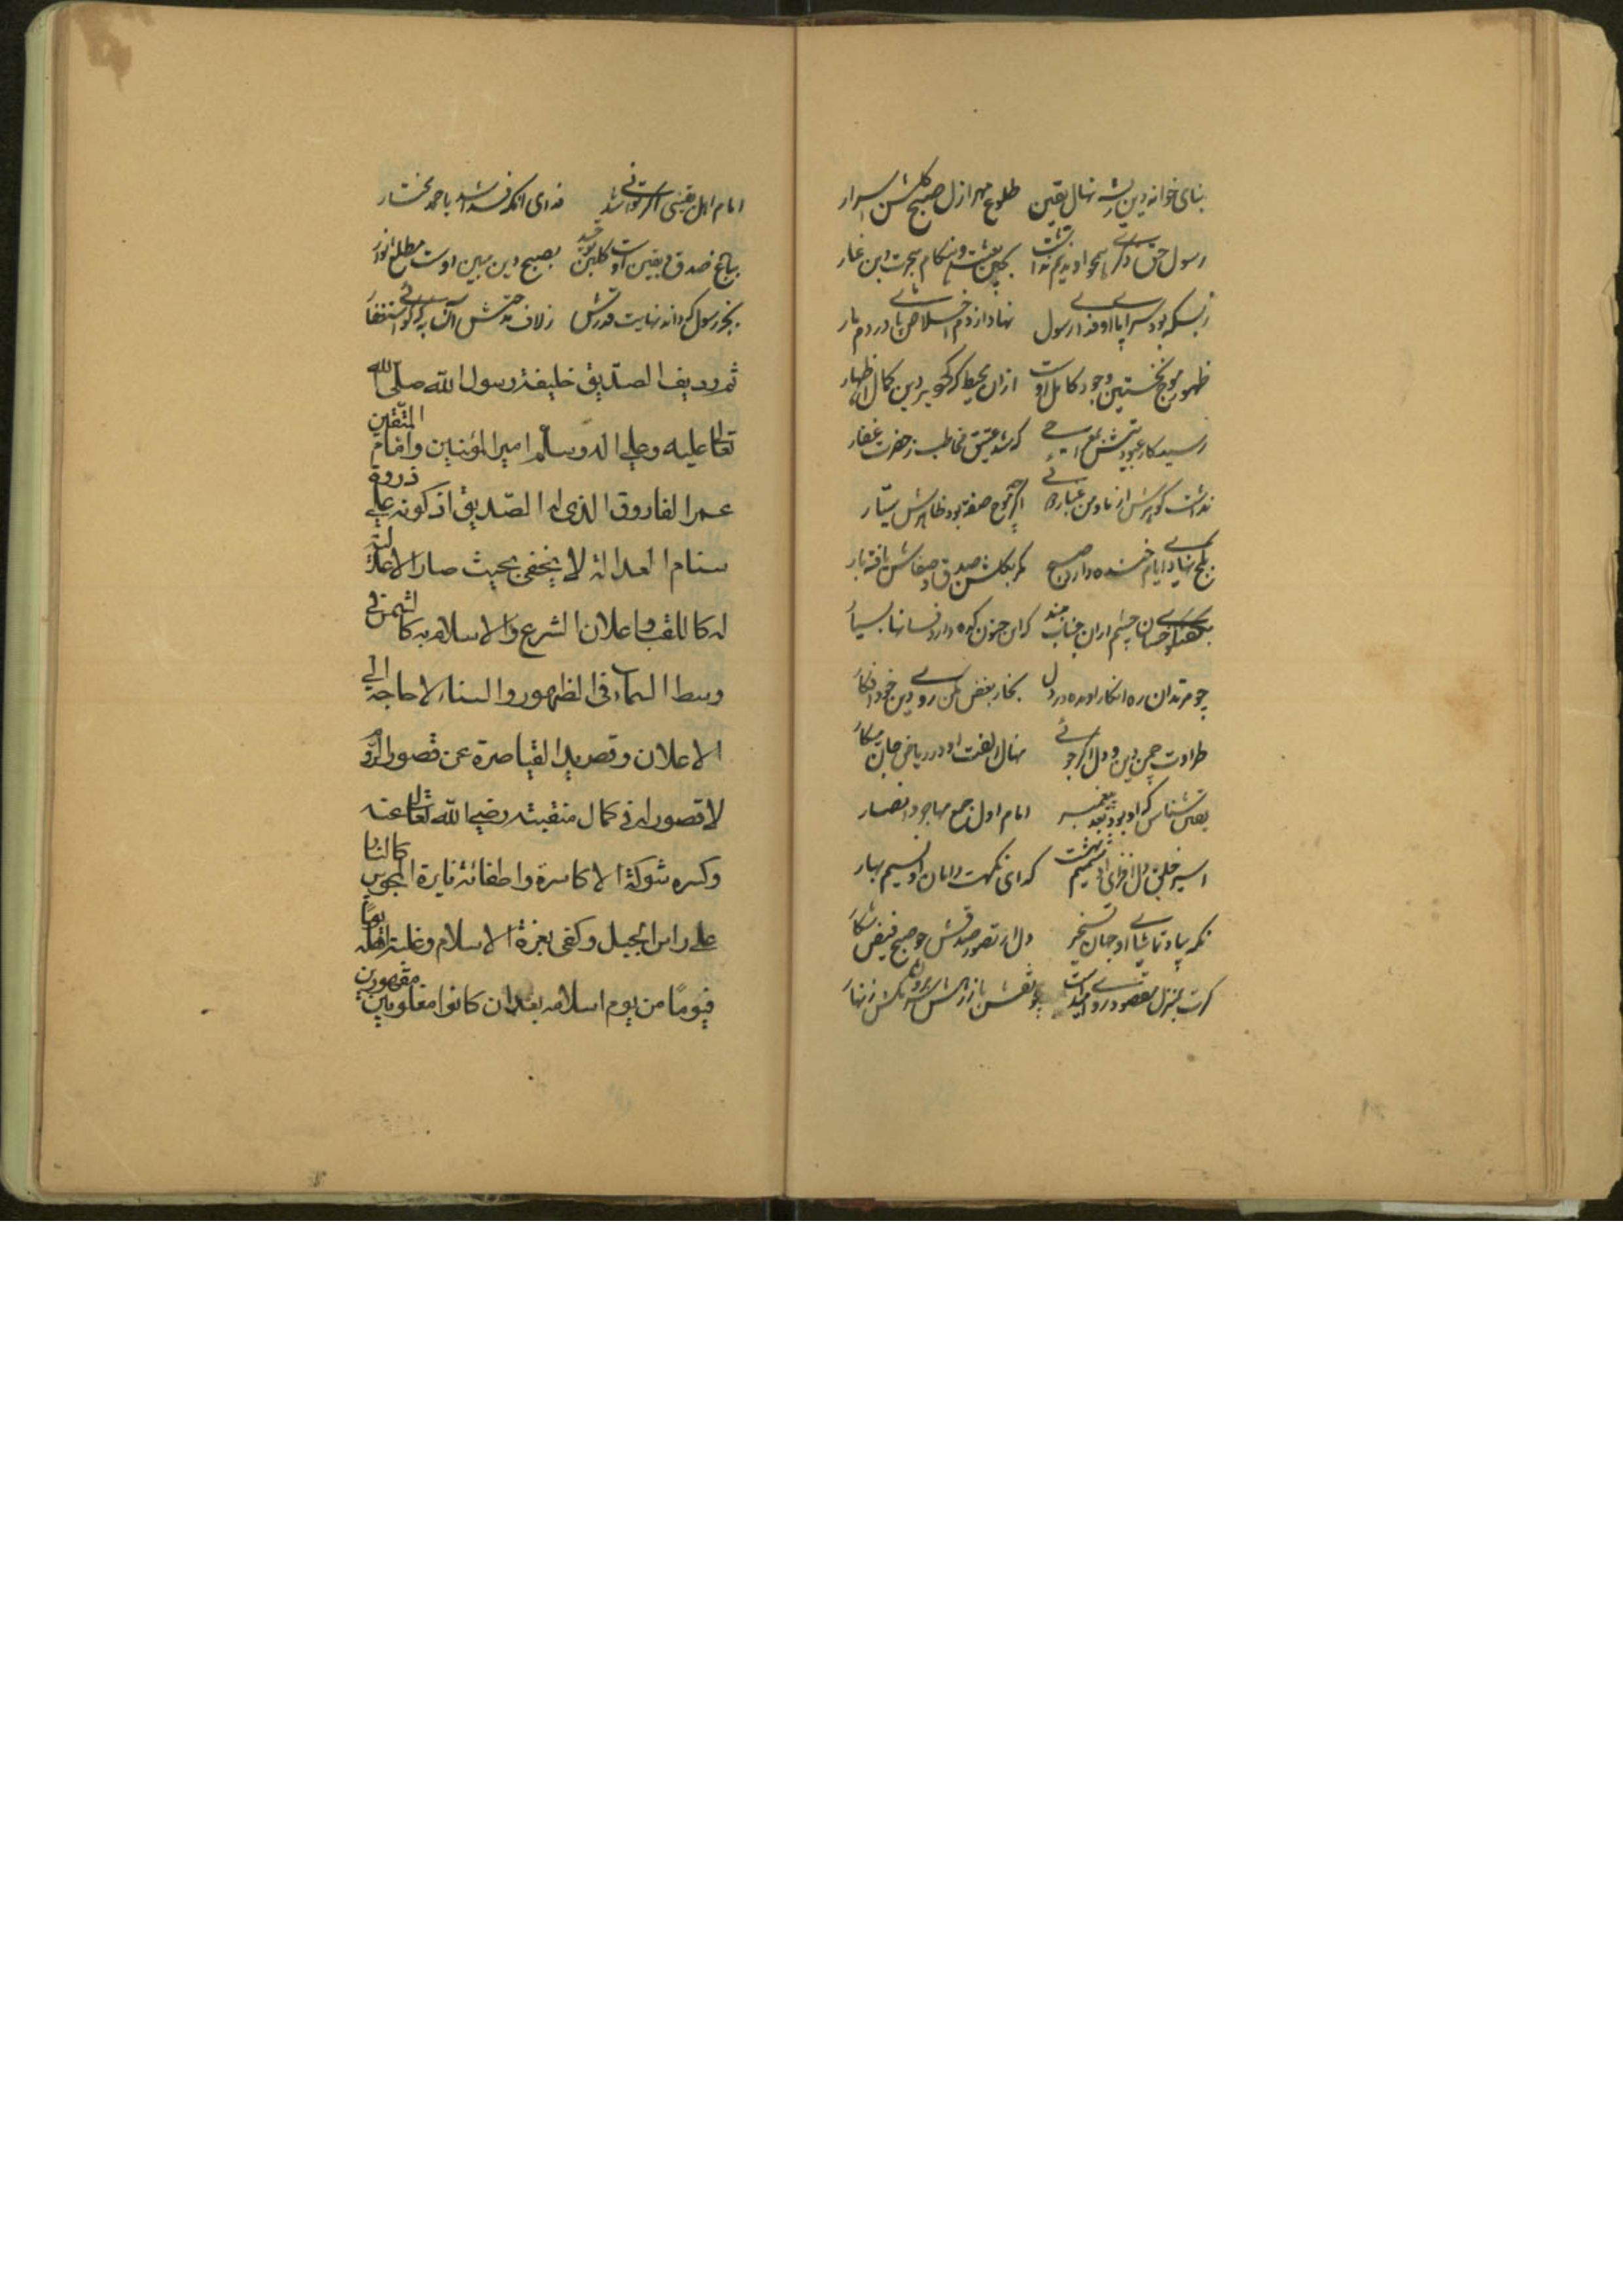 بنای خوانه دین ریشه نهال یقین طلوع مهر ازل صبح گلشن اسرار
رسول حق دگری همچو او ندیم نداشت بکهن و هنگام هجرت ابن غار
زبسکه بود سراپا او فدا رسول نهاد از دم اخلاص پا در دم مار
ظهور موج نخستین وجود کامل اوست ازان محیط که گوهر دین کمال اظهار
رسید کار عبودیتش که شد عتیق مخاطب ز حضرت غفار
نداشت گوهرش از ما و من غباری اگرچه موج صفت بود ظاهرش سیار
بباد ایام خنده دارد صبح مگر بگلشن صدق و صفاش یافته بار
چشم ازان جناب که این جنون کده دارد فسانها بسیار
چو مرتدان ره انکار او مده در دل بخار بغض مکن روی دین خود افگار
طراوت چمن دین و دل اگر جوئی نهال الفت او در ریاض جان میکار
یقین شناس که او بود بعد پیغمبر امام اول جمع مهاجر و انصار
اسیر خلق دل افزای او شمیم بهشت گدای نکهت دامان او نسیم بهار
نگه بیاد تماشای او جهان تسخیر دل از تصور صدقش چو صبح فیض نثار
گرت بمنزل مقصود روی امیدست چو نقش پا ز رهش سر مکش زنهار
امام اهل یقینی اگر توانی شد فدای آنکه فدا شد باحمد مختار
بباغ صدق و یقین اوست گلبن توحید بصبح دین مبین اوست مطلع انوار
بجز رسول که داند نهایت قدرش زلاف مدحتش آن به که گوئی استغفار
ثم رديف الصدّيق خليفة رسول الله صلّى الله
تعالى عليه وعلى آله وسلّم امير المؤمنين وامام المتّقين
عمر الفاروق الذى له الصّديق اذ كونه على ذروة
سنام العدالة لا يخفى بحيث صار الاعدلية
له كاللقب واعلان الشرع والاسلام به كالشمس فى
وسط السماء فى الظهور والسناء لا حاجة الى
الاعلان وقصر يد القياصرة عن قصور الروم
لا قصور له فى كمال منقبته رضى الله تعالى عنه
وكسره شوكة الاكاسرة واطفائه نايرة المجوس كالنار
على راس الجبل وكفى بعزة الاسلام وغلبة اهله يومًا
فيومًا من يوم اسلامه بعد ان كانوا مغلوبين مقهورين